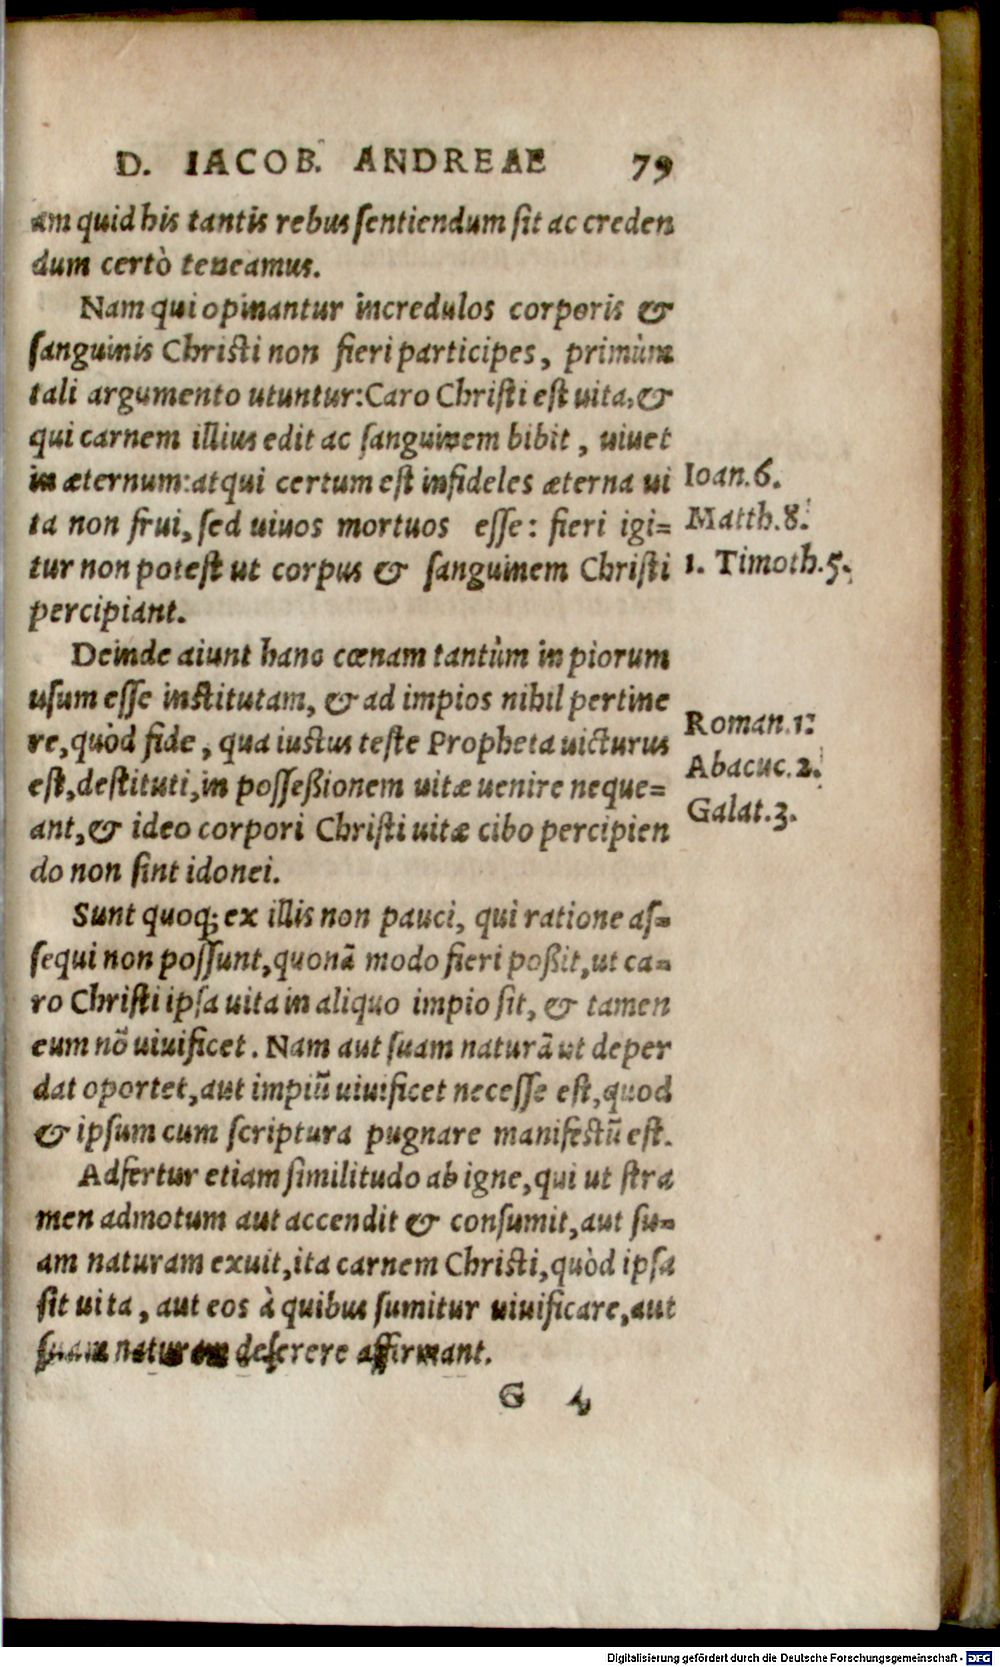 D. IACOB. ANDREAE 79
am quid his tantis rebus sentiendum sit ac creden
dum certò teneamus.
Nam qui opinantur incredulos corporis &
sanguinis Christi non fieri participes, primùm
tali argumento utuntur: Caro Christi est uita, &
qui carnem illius edit ac sanguinem bibit, uiuet
in æternum: atqui certum est infideles æterna ui
ta non frui, sed uiuos mortuos esse: fieri igi=
tur non potest ut corpus & sanguinem Christi
percipiant.
Ioan. 6.
Matth. 8.
1. Timoth. 5.
Deinde aiunt hanc cœnam tantùm in piorum
usum esse institutam, & ad impios nihil pertine
re, quòd fide, qua iustus teste Propheta uicturus
est, destituti, in possessionem uitæ uenire neque=
ant, & ideo corpori Christi uitæ cibo percipien
do non sint idonei.
Roman. 1.
Abacuc. 2.
Galat. 3.
Sunt quoq; ex illis non pauci, qui ratione as=
sequi non possunt, quonā modo fieri poßit, ut ca=
ro Christi ipsa uita in aliquo impio sit, & tamen
eum nō uiuificet. Nam aut suam naturā ut deper
dat oportet, aut impiū uiuificet necesse est, quod
& ipsum cum scriptura pugnare manifestū est.
Adfertur etiam similitudo ab igne, qui ut stra
men admotum aut accendit & consumit, aut su=
am naturam exuit, ita carnem Christi, quòd ipsa
sit uita, aut eos à quibus sumitur uiuificare, aut
suam naturam deserere affirmant.
G 4
Digitalisierung gefördert durch die Deutsche Forschungsgemeinschaft - DFG